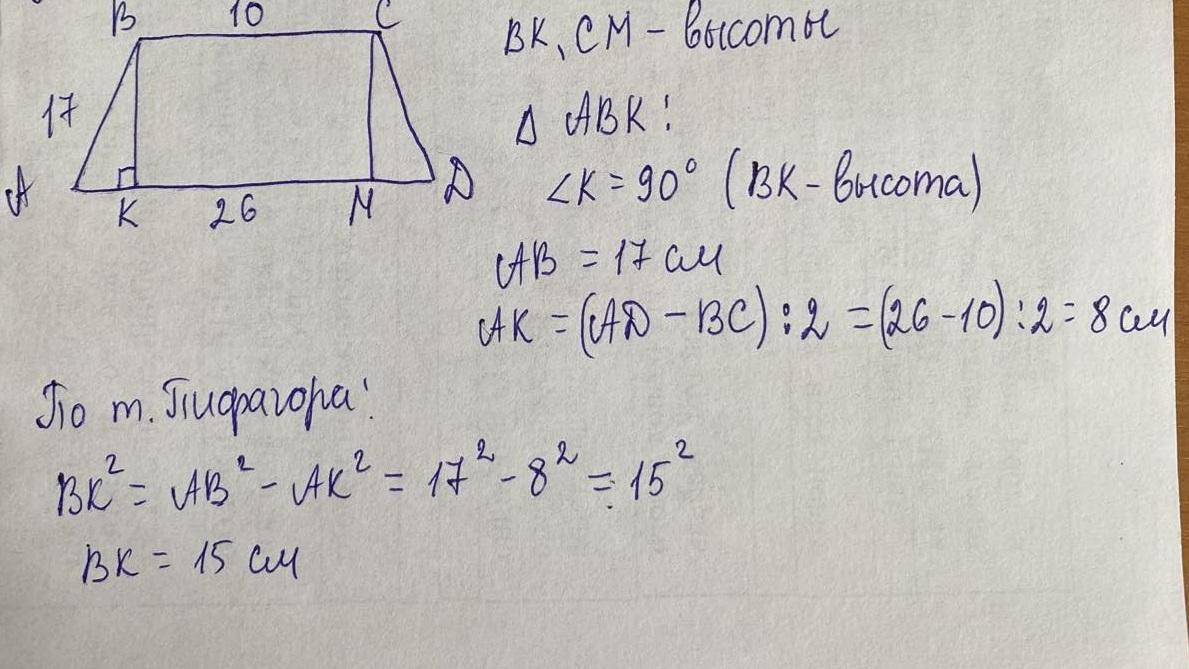 B 10 C
17
A K 26 M D
BK, CM - высоты
Δ ABK:
∠K = 90° (BK - высота)
AB = 17 см
AK = (AD - BC) : 2 = (26 - 10) : 2 = 8 см
По т. Пифагора:
BK² = AB² - AK² = 17² - 8² = 15²
BK = 15 см